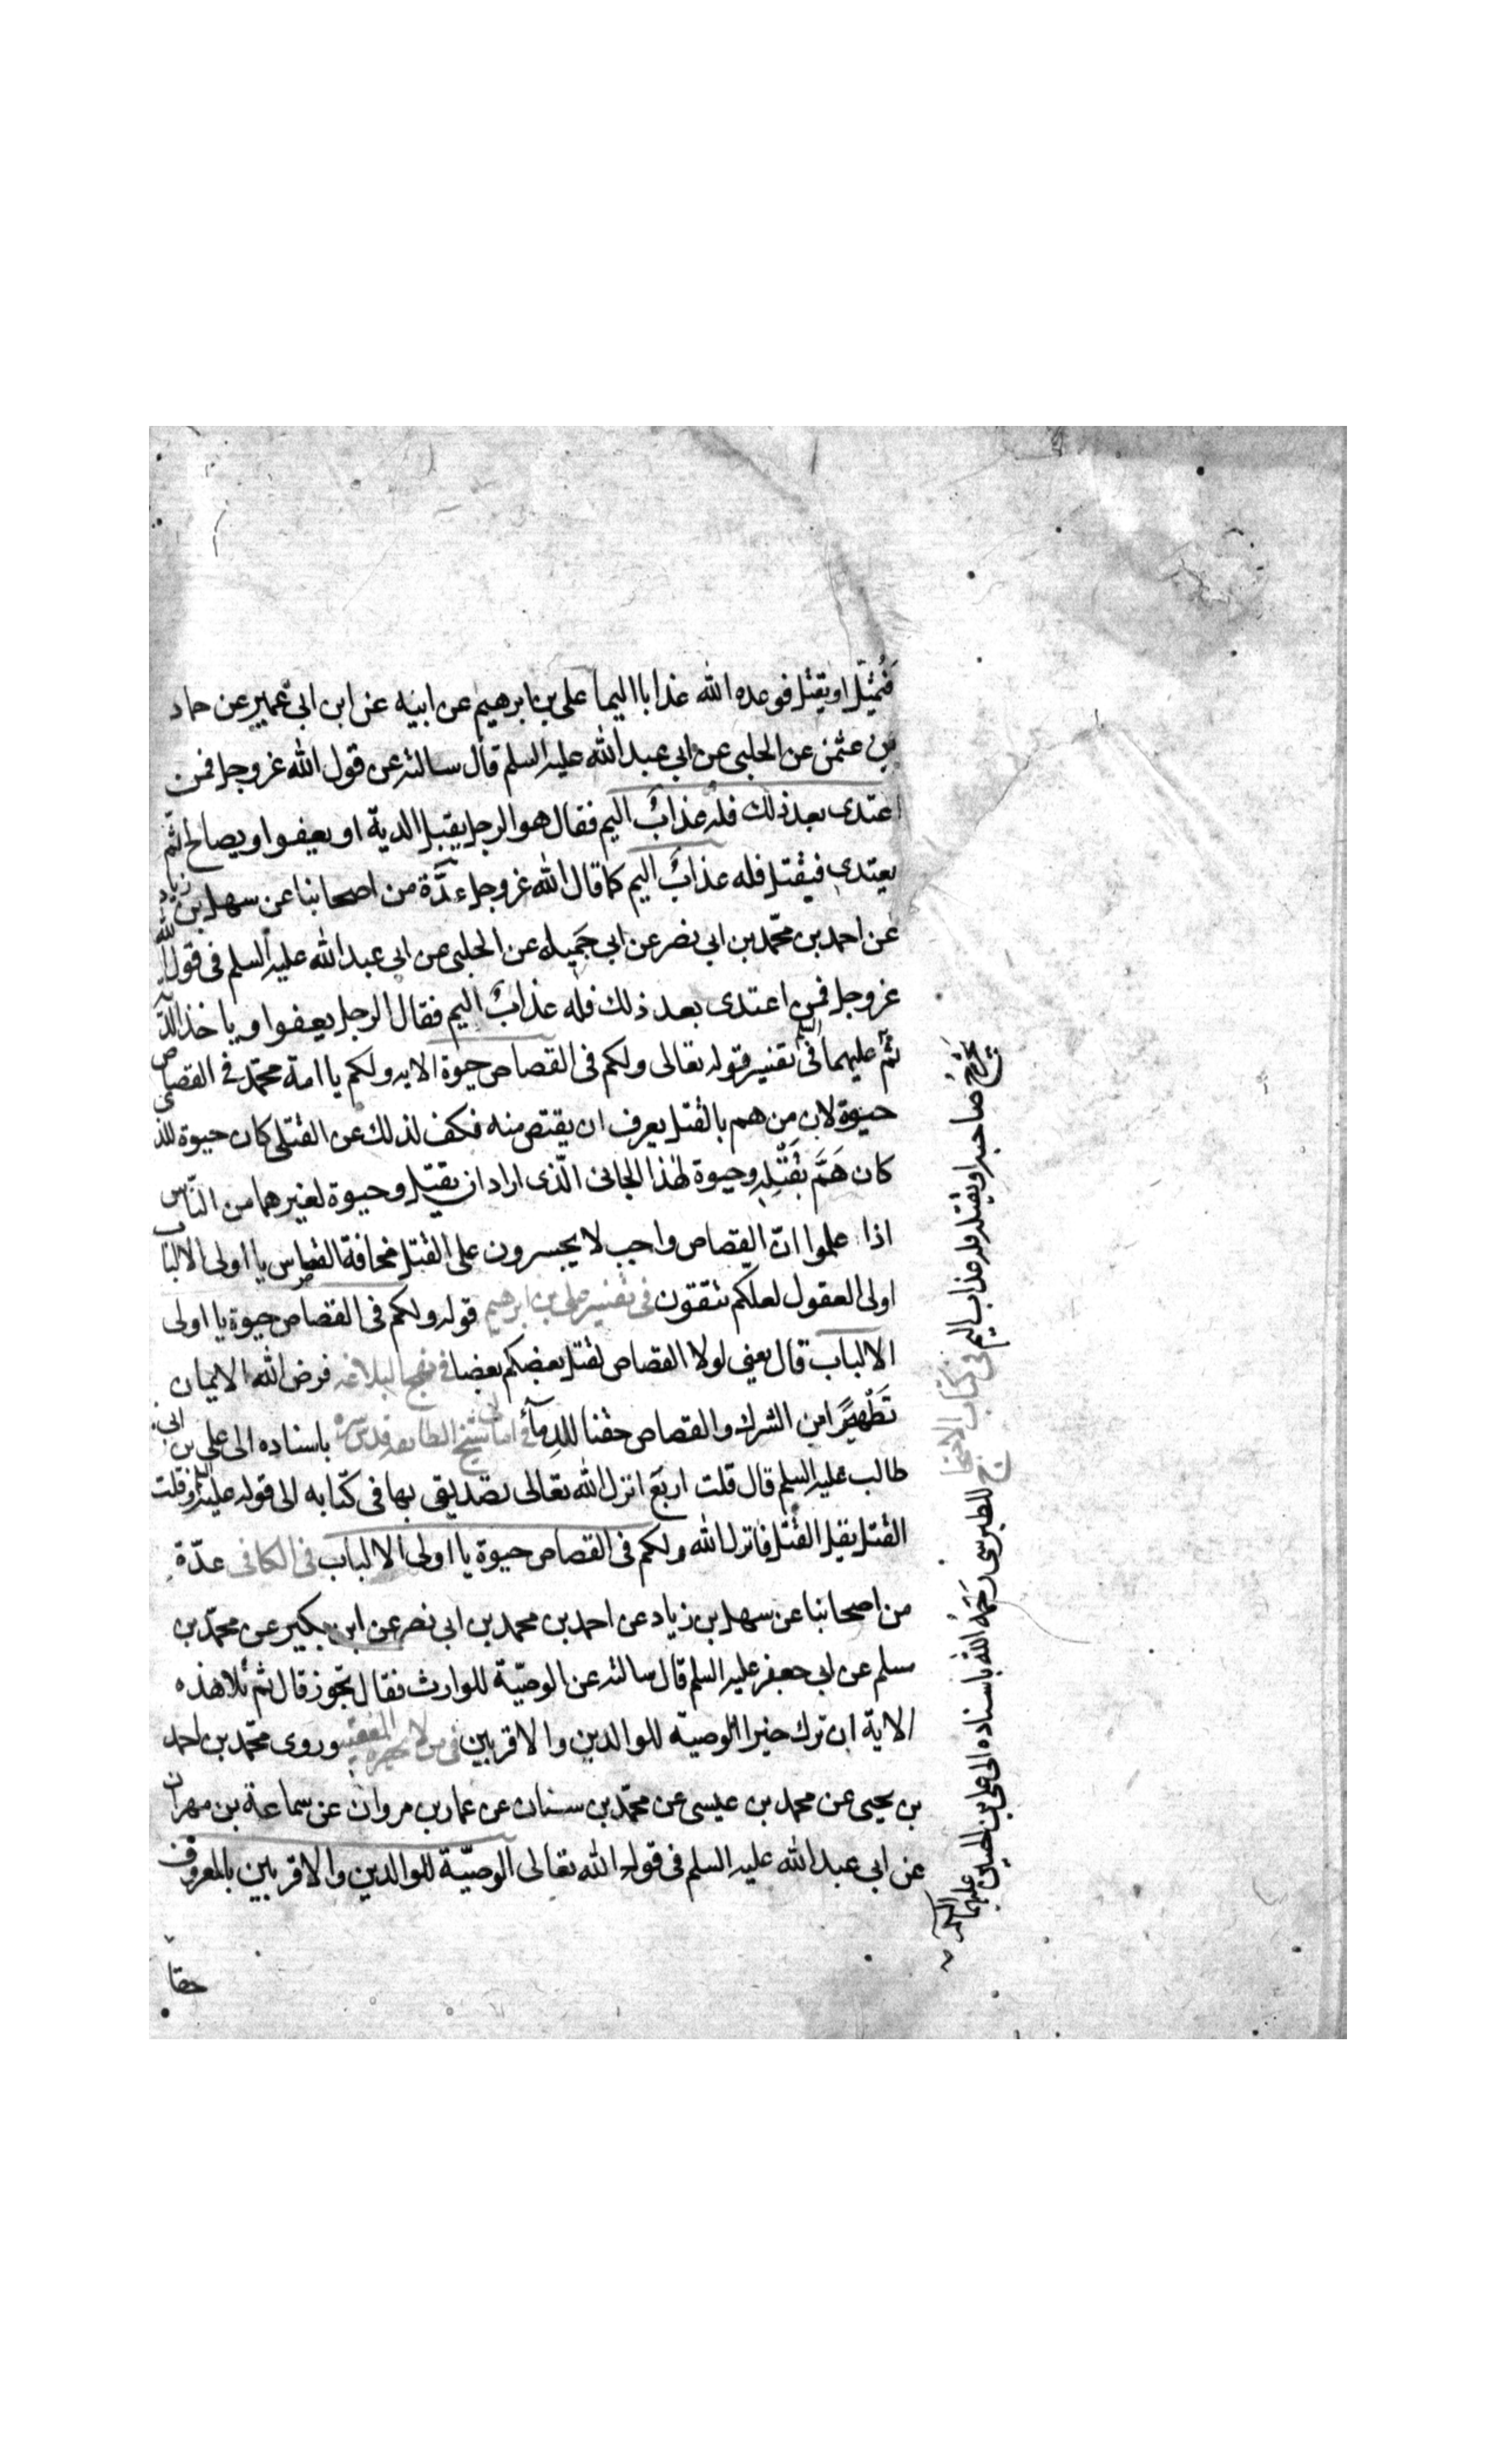 فيُمَثِّل او يقتل فوعده الله عذابا اليما علي بن ابرهيم عن ابيه عن ابن ابي عمير عن حماد
بن عثمن عن الحلبي عن ابي عبد الله عليه السلم قال سالته عن قول الله عز وجل فمن
اعتدى بعد ذلك فله عذابٌ اليم فقال هو الرجل يقبل الدية او يعفوا و يصالح ثم
يعتدي فيقتل فله عذابٌ اليم كما قال الله عز وجل عدَّة من اصحابنا عن سهل بن زياد
عن احمد بن محمّد بن ابي نصر عن ابي جَميله عن الحلبي عن ابي عبد الله عليه السلم في قول الله
عز وجل فمن اعتدى بعد ذلك فله عذابٌ اليم فقال الرجل يعفوا و ياخذ الدية
ثم عليهما السلم في تفسير قوله تعالى ولكم في القصاص حيوة الايه ولكم يا امة محمّد في القصاص
حيوة لان من هم بالقتل يعرف ان يقتص منه فكف لذلك عن القتل كان حيوة للذي
كان هَمَّ بقَتْلِه وحيوة لهذا الجاني الّذي اراد ان يقتل وحيوة لغيرهما من النّاس
اذا علموا انّ القصاص واجب لا يجسرون على القتل مخافة القصاص يا اولى الالباب
اولى العقول لعلكم تتقون في تفسير علي بن ابرهيم قوله ولكم في القصاص حيوة يا اولى
الالباب قال يعني لولا القصاص لقتل بعضكم بعضا في نهج البلاغه فرض الله الايمان
تَطْهيرًا من الشرك والقصاص حقنا للدِمآء في امالي شيخ الطايفه قدس سره باسناده الى علي بن ابي
طالب عليه السلم قال قلت اربعَ انزل الله تعالى تصديقي بها في كتابه الى قوله عليه السلم وقلت
القتل يقل القتل فانزل الله ولكم في القصاص حيوة يا اولى الالباب في الكافي عدّة
من اصحابنا عن سهل بن زياد عن احمد بن محمد بن ابي نصر عن ابن بكير عن محمّد بن
مسلم عن ابي جعفر عليه السلم قال سالته عن الوصيّة للوارث فقال تجوز قال ثم تلا هذه
الاية ان ترك خيرا الوصية للوالدين والاقربين في من لا يحضره الفقيه وروى محمّد بن احمد
بن يحيى عن محمد بن عيسى عن محمّد بن سنان عن عمار بن مروان عن سماعة بن مهران
عن ابي عبد الله عليه السلم في قول الله تعالى الوصيّة للوالدين والاقربين بالمعروف
حقا
صاحبه او يقتله فله عذاب اليم في كتاب الاحتجاج للطبرسي رَحمَهُ الله باسناده الى علي بن الحسين عليهما السلم